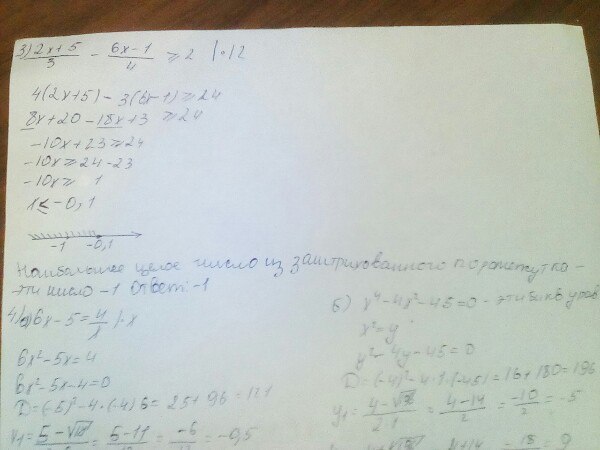 3) (2x+5)/3 - (6x-1)/4 ≥ 2 |·12
4(2x+5) - 3(6x-1) ≥ 24
8x+20 - 18x+3 ≥ 24
-10x+23 ≥ 24
-10x ≥ 24-23
-10x ≥ 1
x ≤ -0,1
-1 -0,1
Наибольшее целое число из заштрихованного промежутка -
это число -1 Ответ: -1
4) а) 6x-5 = 4/x |·x
6x²-5x=4
6x²-5x-4=0
D=(-5)²-4·(-4)·6=25+96=121
x₁ = (5-√121)/ = (5-11)/ = -6/ = -0,5
б) x⁴-4x²-45=0 - это бикв. урав
x²=y
y²-4y-45=0
D=(-4)²-4·1·(-45)=16+180=196
y₁ = (4-√)/2·1 = (4-14)/2 = -10/2 = -5
= 18/ = 9